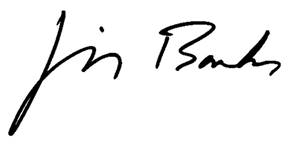 Jim Banks